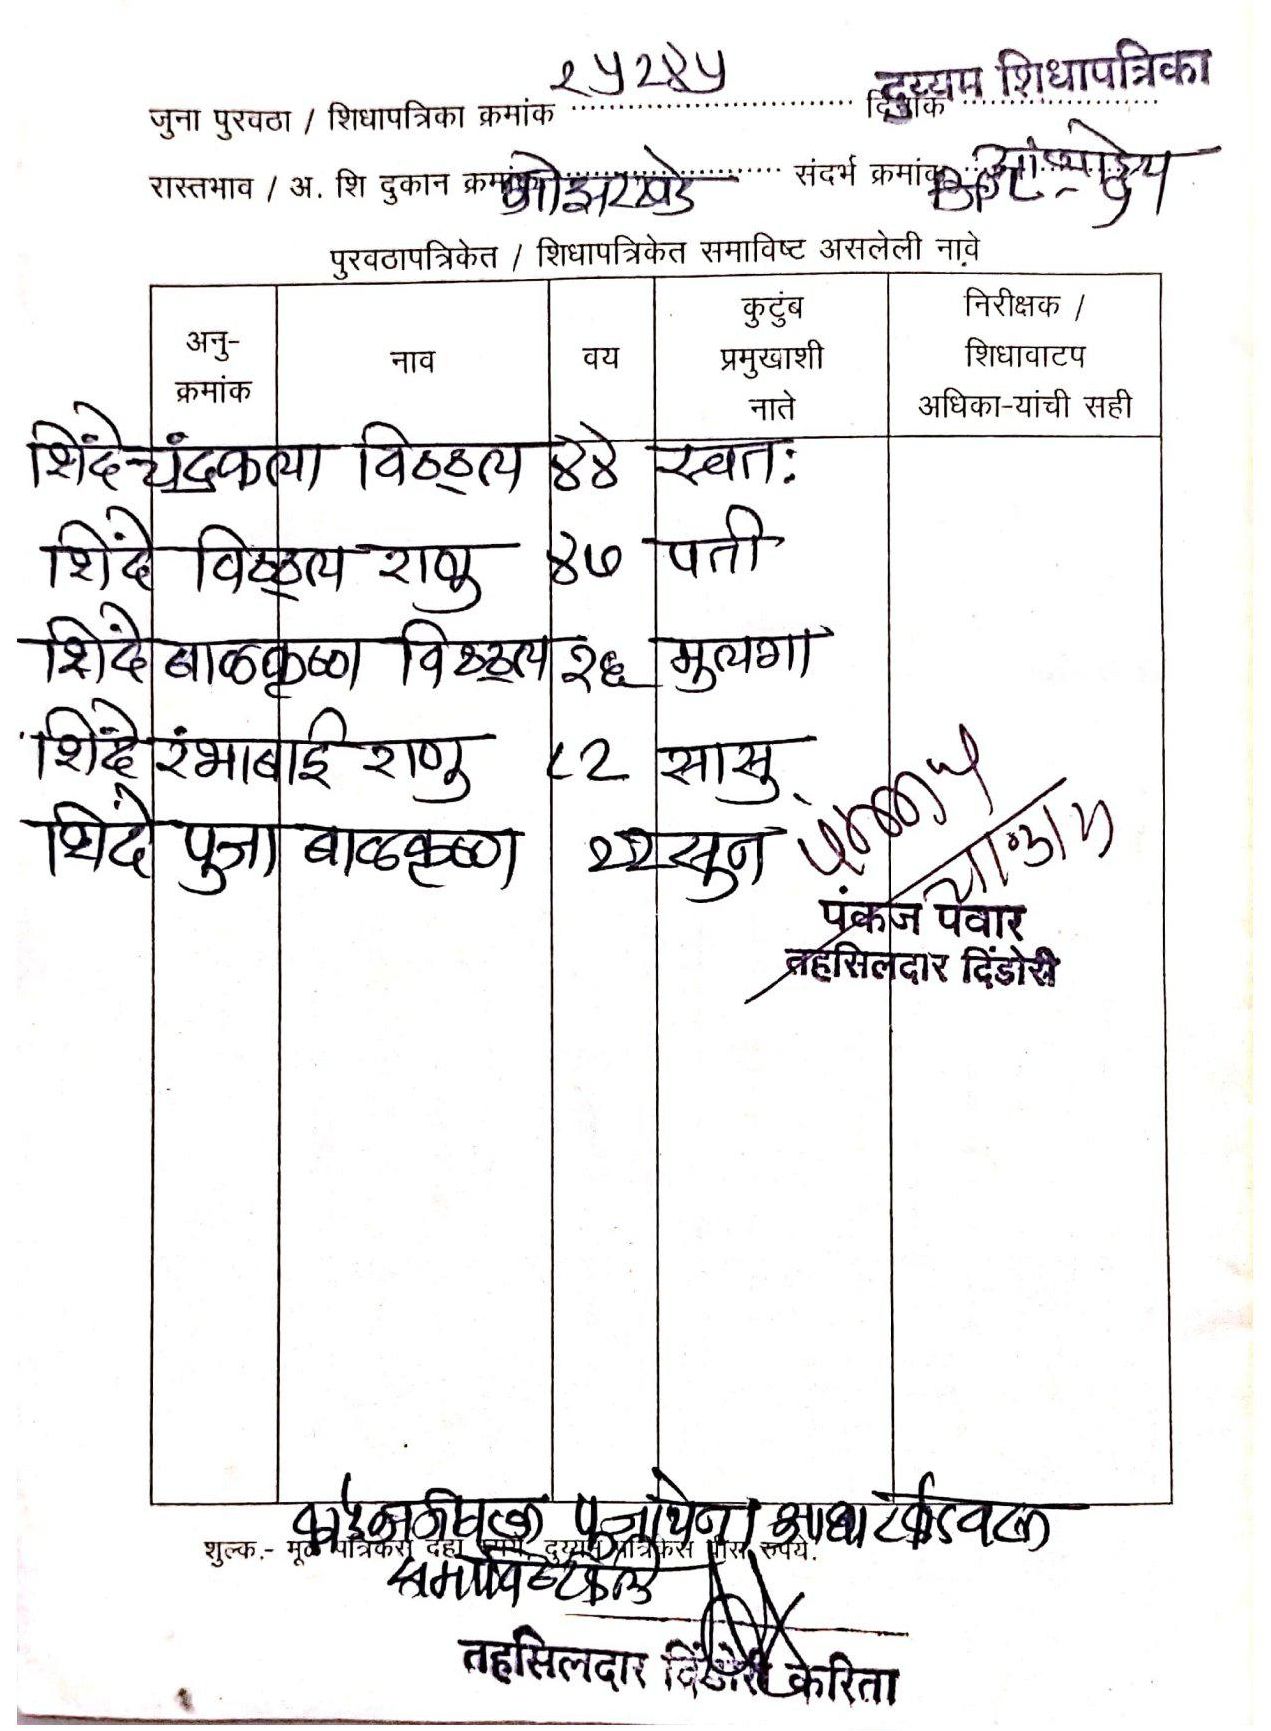 २५२४५ दुय्यम शिधापत्रिका
जुना पुरवठा / शिधापत्रिका क्रमांक .............................. दिनांक ....................
रास्तभाव / अ. शि दुकान क्रमांक ओझरखेड संदर्भ क्रमांक
पुरवठापत्रिकेत / शिधापत्रिकेत समाविष्ट असलेली नावे
अनु-क्रमांक नाव वय कुटुंब प्रमुखाशी नाते निरीक्षक / शिधावाटप अधिका-यांची सही
शिंदे चंद्रकला विठ्ठल ४४ स्वतः
शिंदे विठ्ठल राणु ४७ पती
शिंदे बाळकृष्ण विठ्ठल २६ मुलगा
शिंदे रंभाबाई राणु ८२ सासु
शिंदे पुजा बाळकृष्ण २२ सुन
पंकज पवार
तहसिलदार दिंडोरी
शुल्क.- मूळ पत्रिकेस दहा रुपये, दुय्यम पत्रिकेस वीस रुपये.
तहसिलदार दिंडोरी करिता